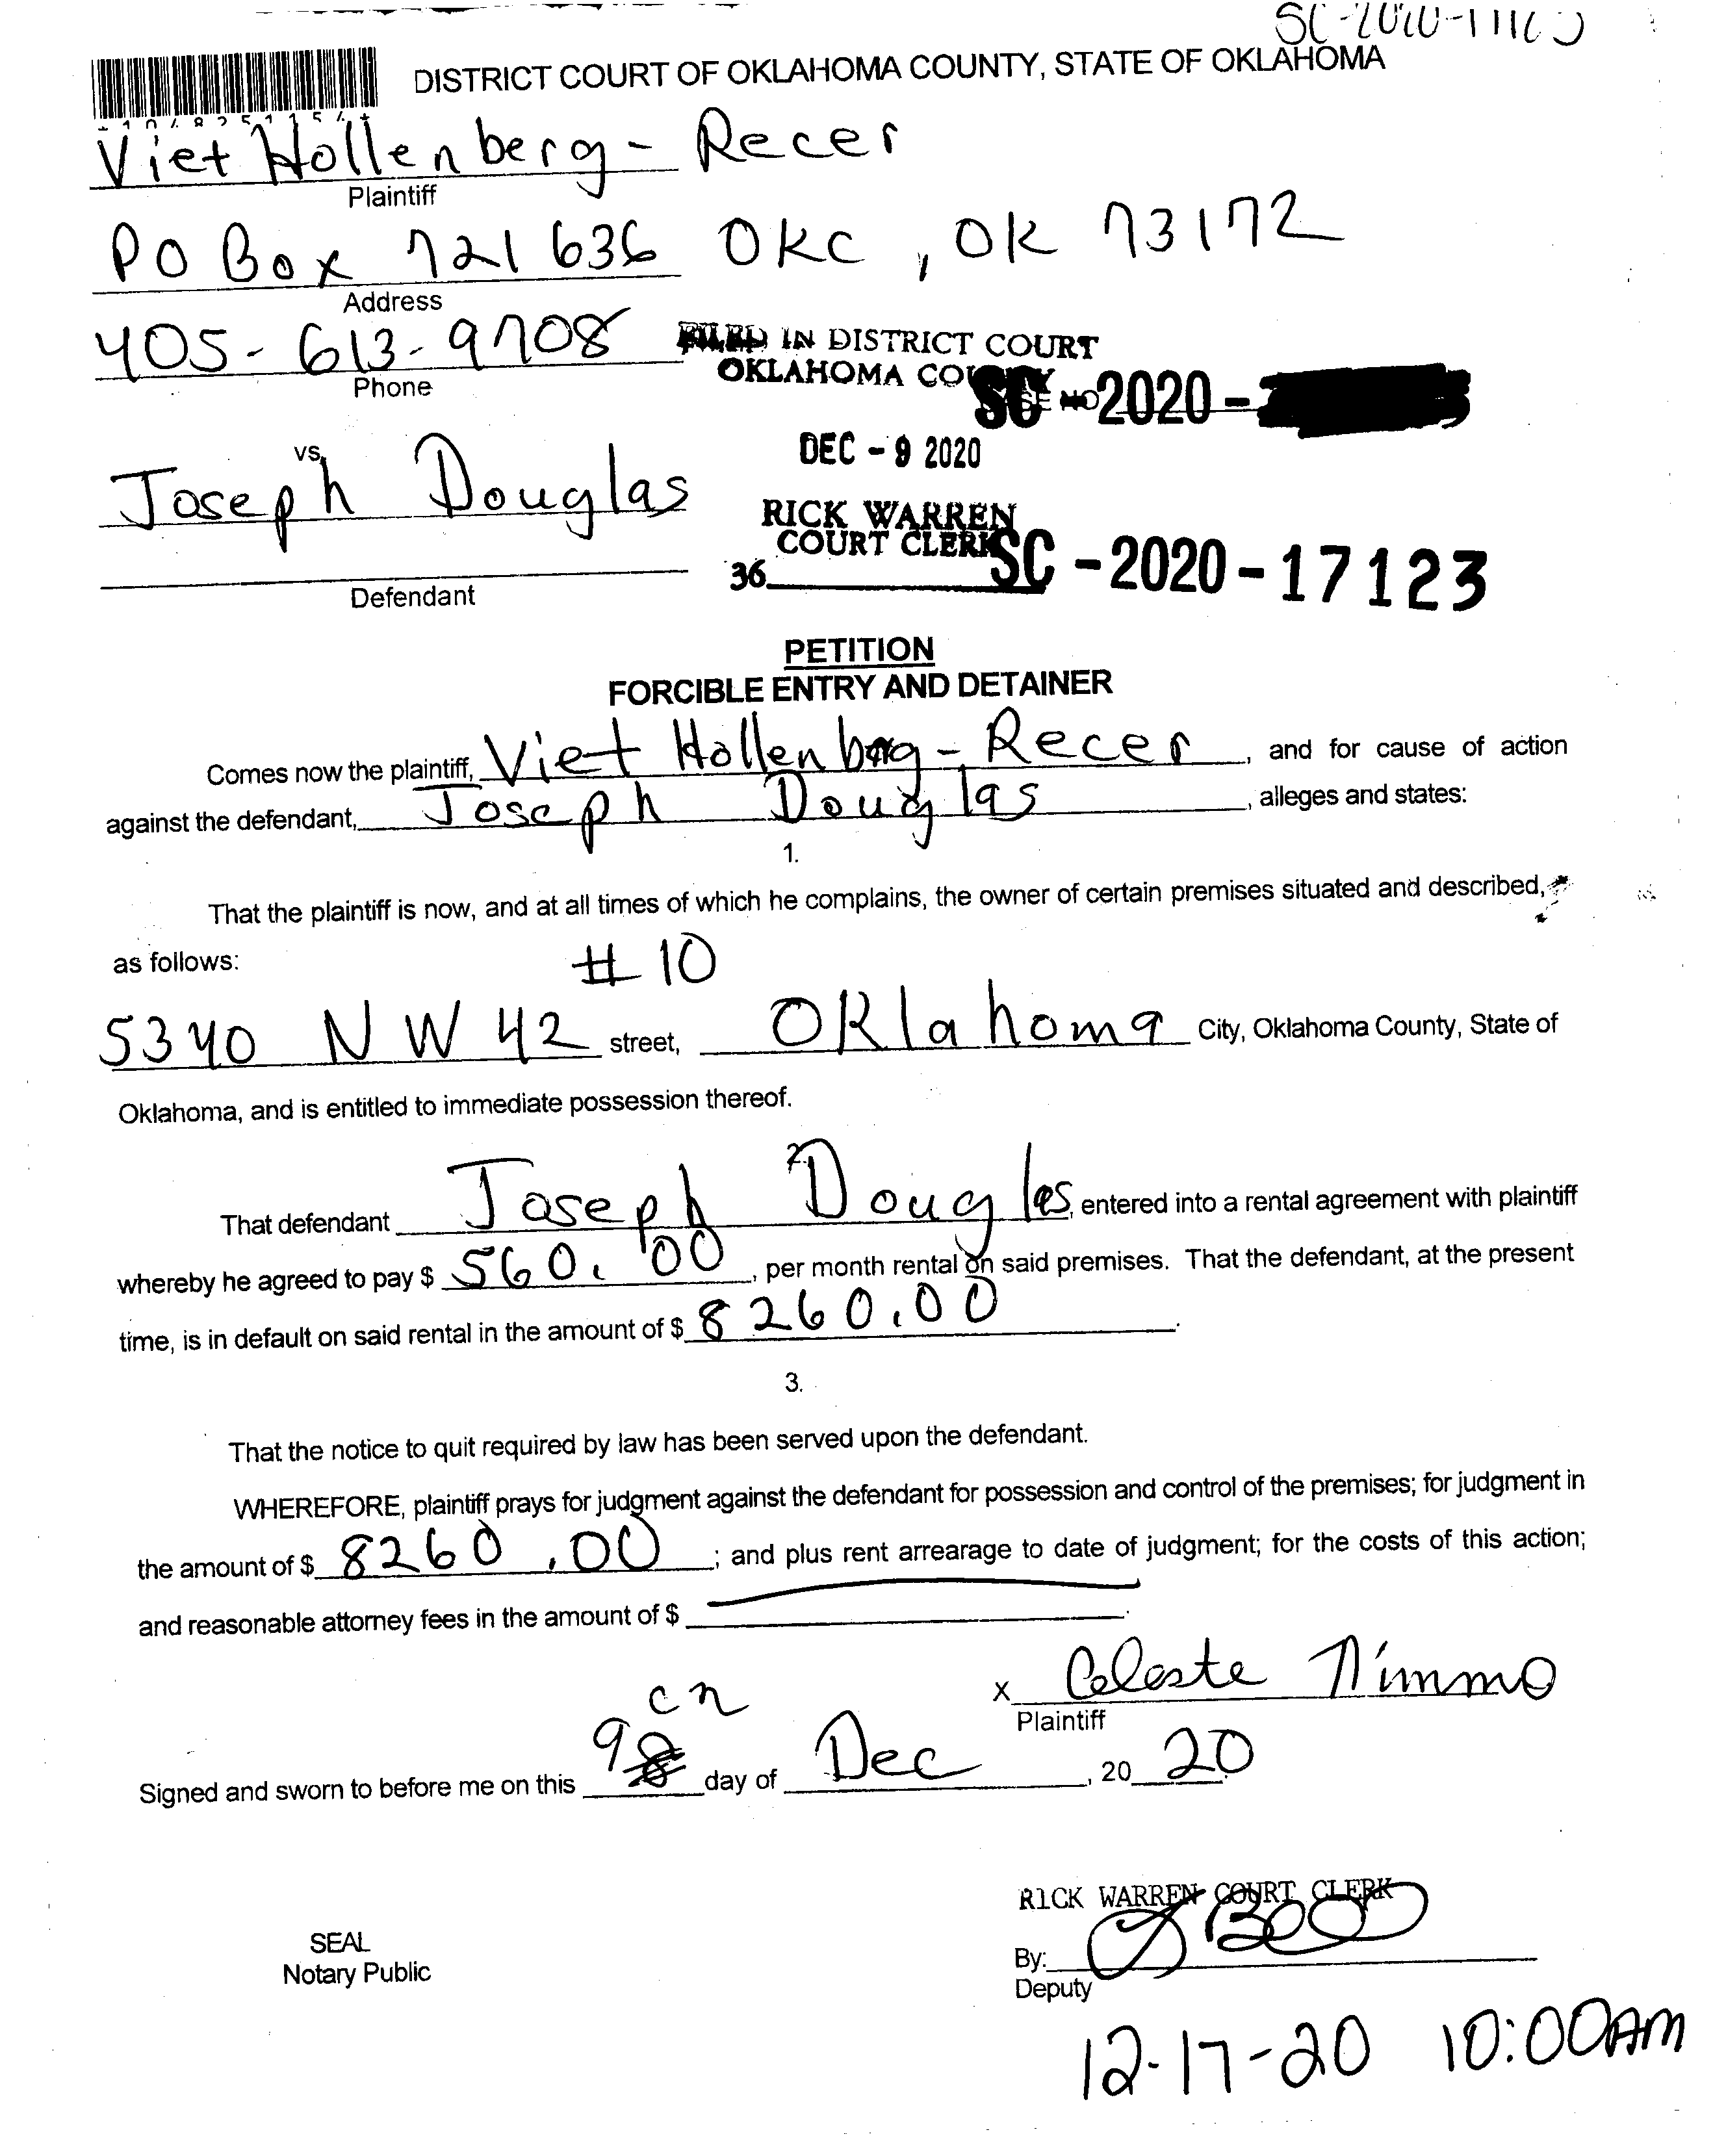 DISTRICT COURT OF OKLAHOMA COUNTY, STATE OF OKLAHOMA
Viet Hollenberg - Recer
Plaintiff
PO Box 721636 OKC, OK 73172
Address
405-613-9708
Phone
FILED IN DISTRICT COURT
OKLAHOMA COUNTY
SC - 2020 -
DEC - 9 2020
vs.
Joseph Douglas
RICK WARREN
COURT CLERK
36 SC - 2020 - 17123
Defendant
PETITION
FORCIBLE ENTRY AND DETAINER
Comes now the plaintiff, Viet Hollenberg - Recer, and for cause of action
against the defendant, Joseph Douglas, alleges and states:
1.
That the plaintiff is now, and at all times of which he complains, the owner of certain premises situated and described,
as follows:
#10
5340 NW 42 street, Oklahoma City, Oklahoma County, State of
Oklahoma, and is entitled to immediate possession thereof.
2.
That defendant Joseph Douglas, entered into a rental agreement with plaintiff
whereby he agreed to pay $ 560.00, per month rental on said premises. That the defendant, at the present
time, is in default on said rental in the amount of $ 8260.00.
3.
That the notice to quit required by law has been served upon the defendant.
WHEREFORE, plaintiff prays for judgment against the defendant for possession and control of the premises; for judgment in
the amount of $ 8260.00; and plus rent arrearage to date of judgment; for the costs of this action;
and reasonable attorney fees in the amount of $
x Celeste Nimmo
Plaintiff
cn
Signed and sworn to before me on this 9 day of Dec, 20 20
RICK WARREN COURT CLERK
SEAL
Notary Public
By:
Deputy
12-17-20 10:00AM